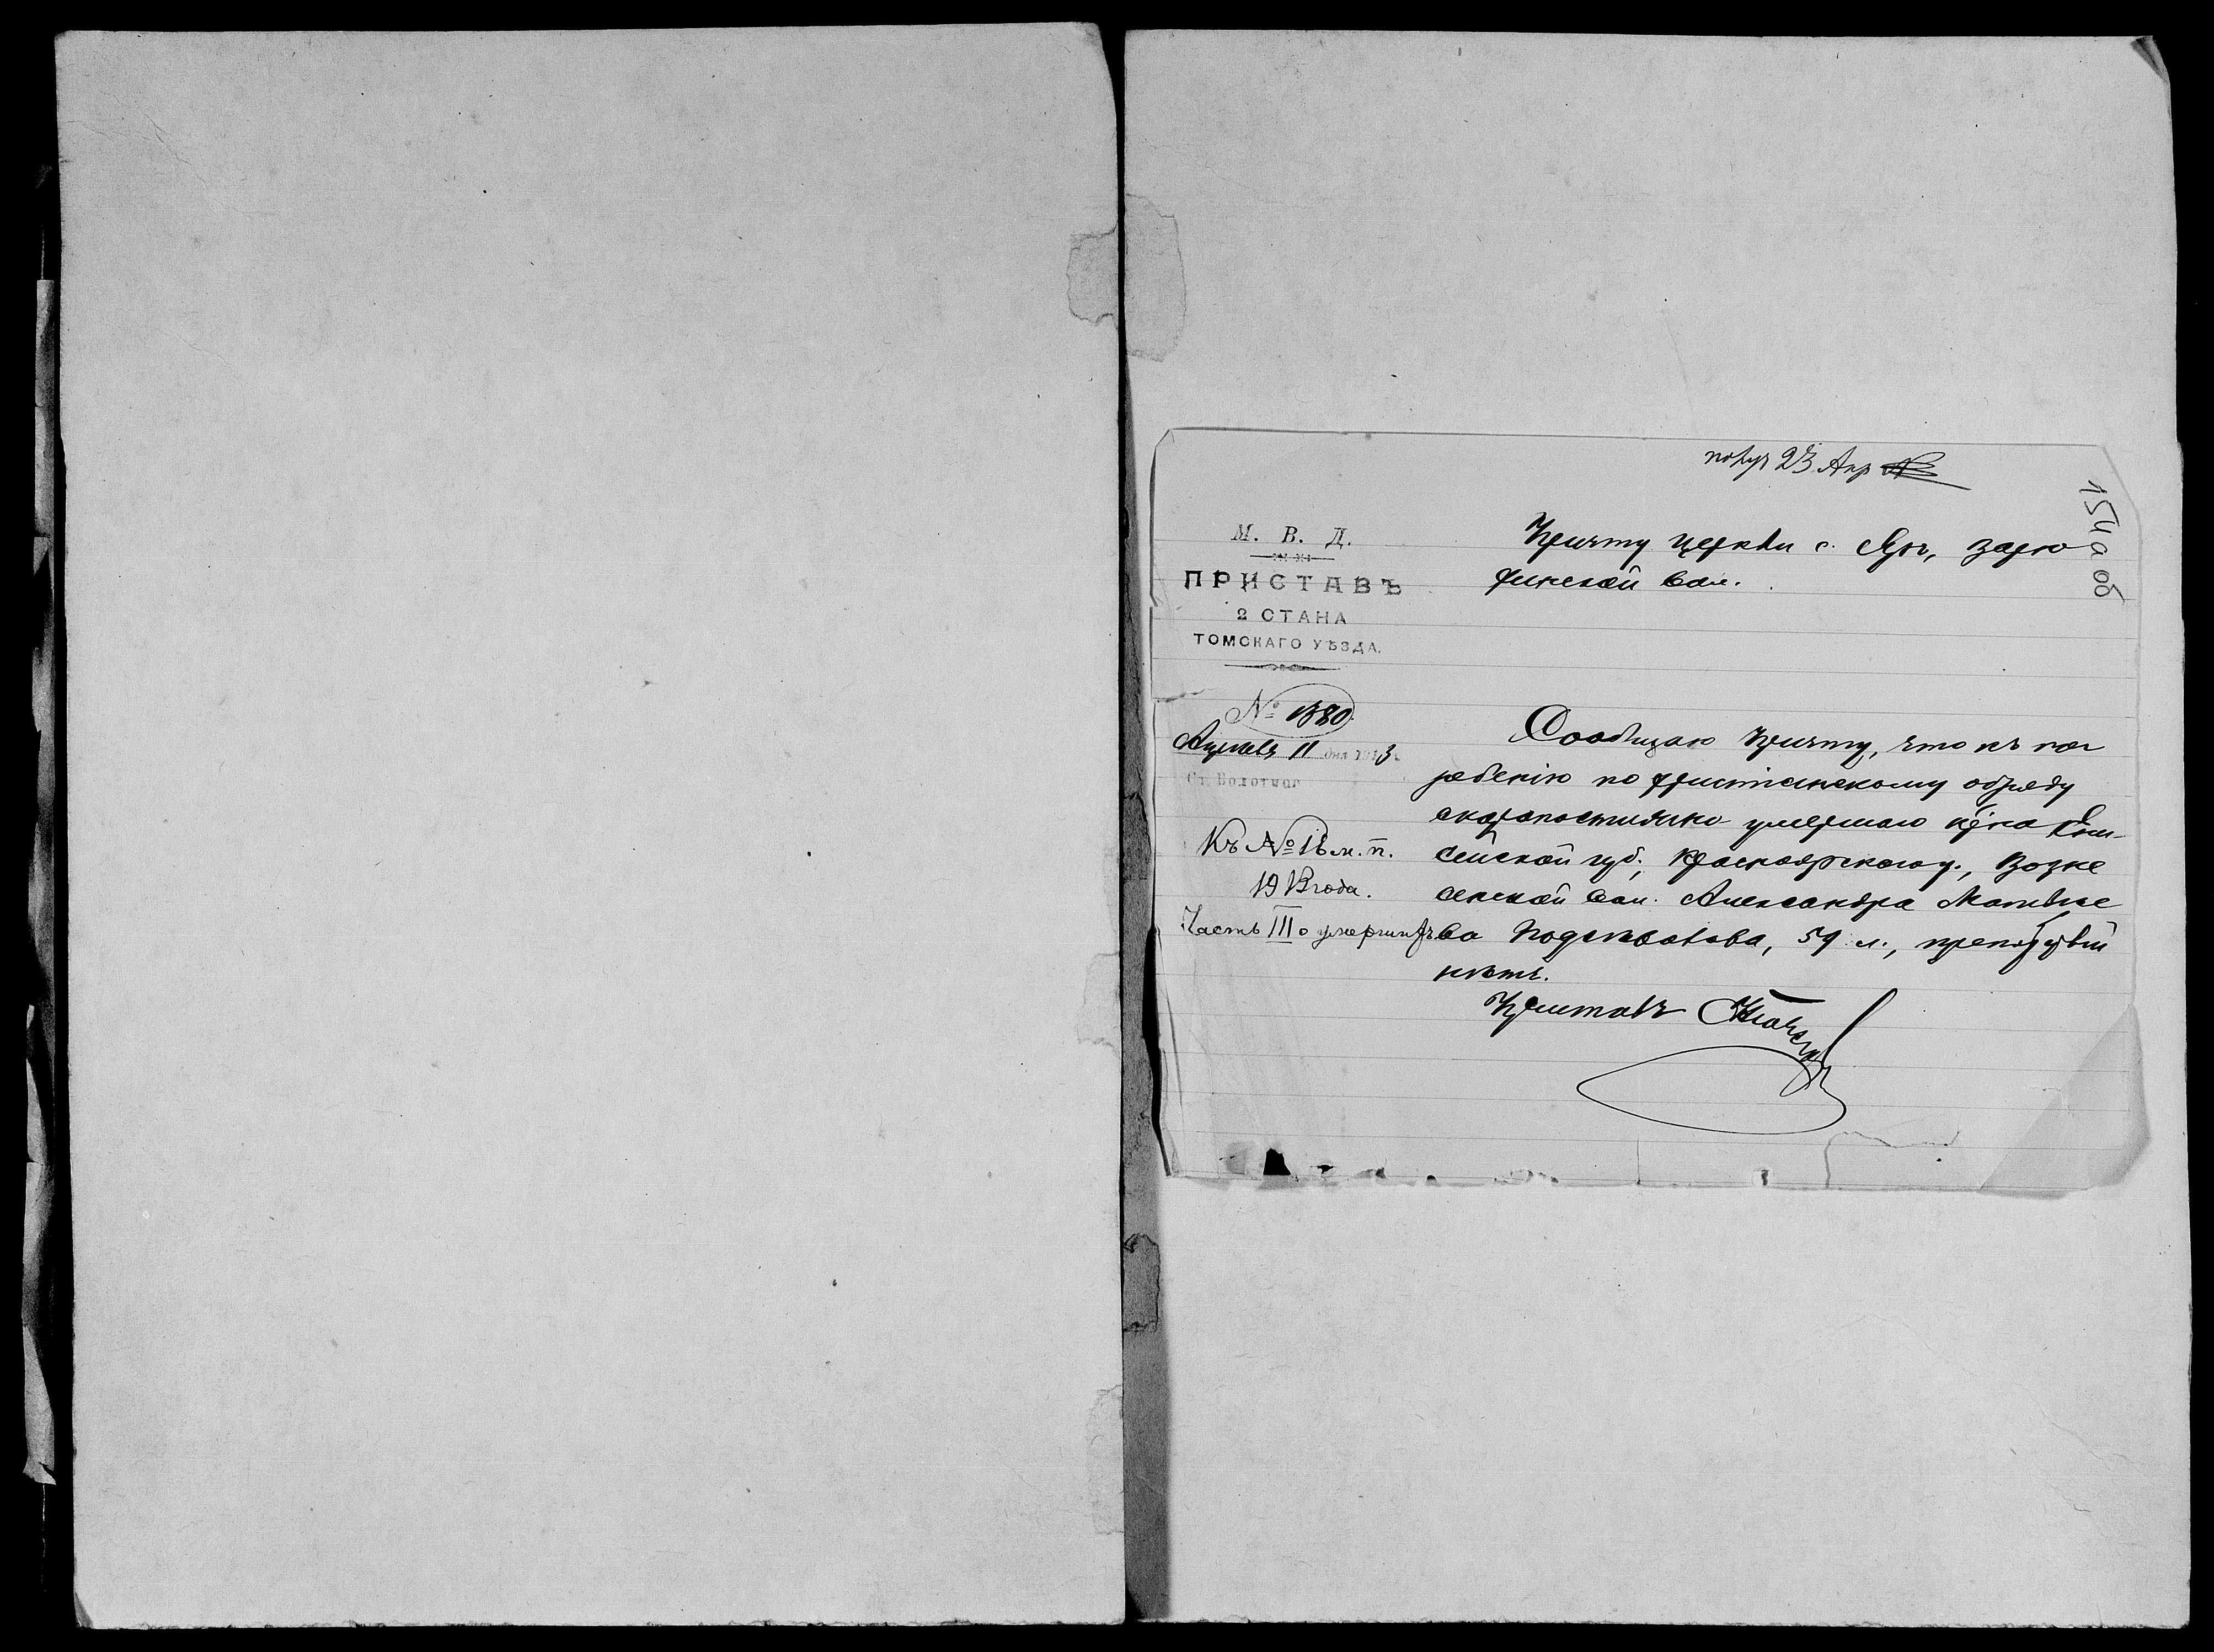 получ 23 Апр
154а об
М. В. Д.
ПРИСТАВЪ
2 СТАНА
ТОМСКАГО УѢЗДА.
№ 1380.
Апреля 11 дня 1913 г.
Ст. Болотная
Къ № 18 м. п.
1913 года.
Часть III о умершихъ
Причту церкви с. Яръ,
вол.
Сообщаю Причту, что къ пог
ребенію по христіанскому обряду
скоропостижно умершаго кр-на Ени-
сейской губ., Красноярскаго у., Возне
сенской вол. Александра Матвѣе
ва 59 л., препятствій
нѣтъ.
Приставъ